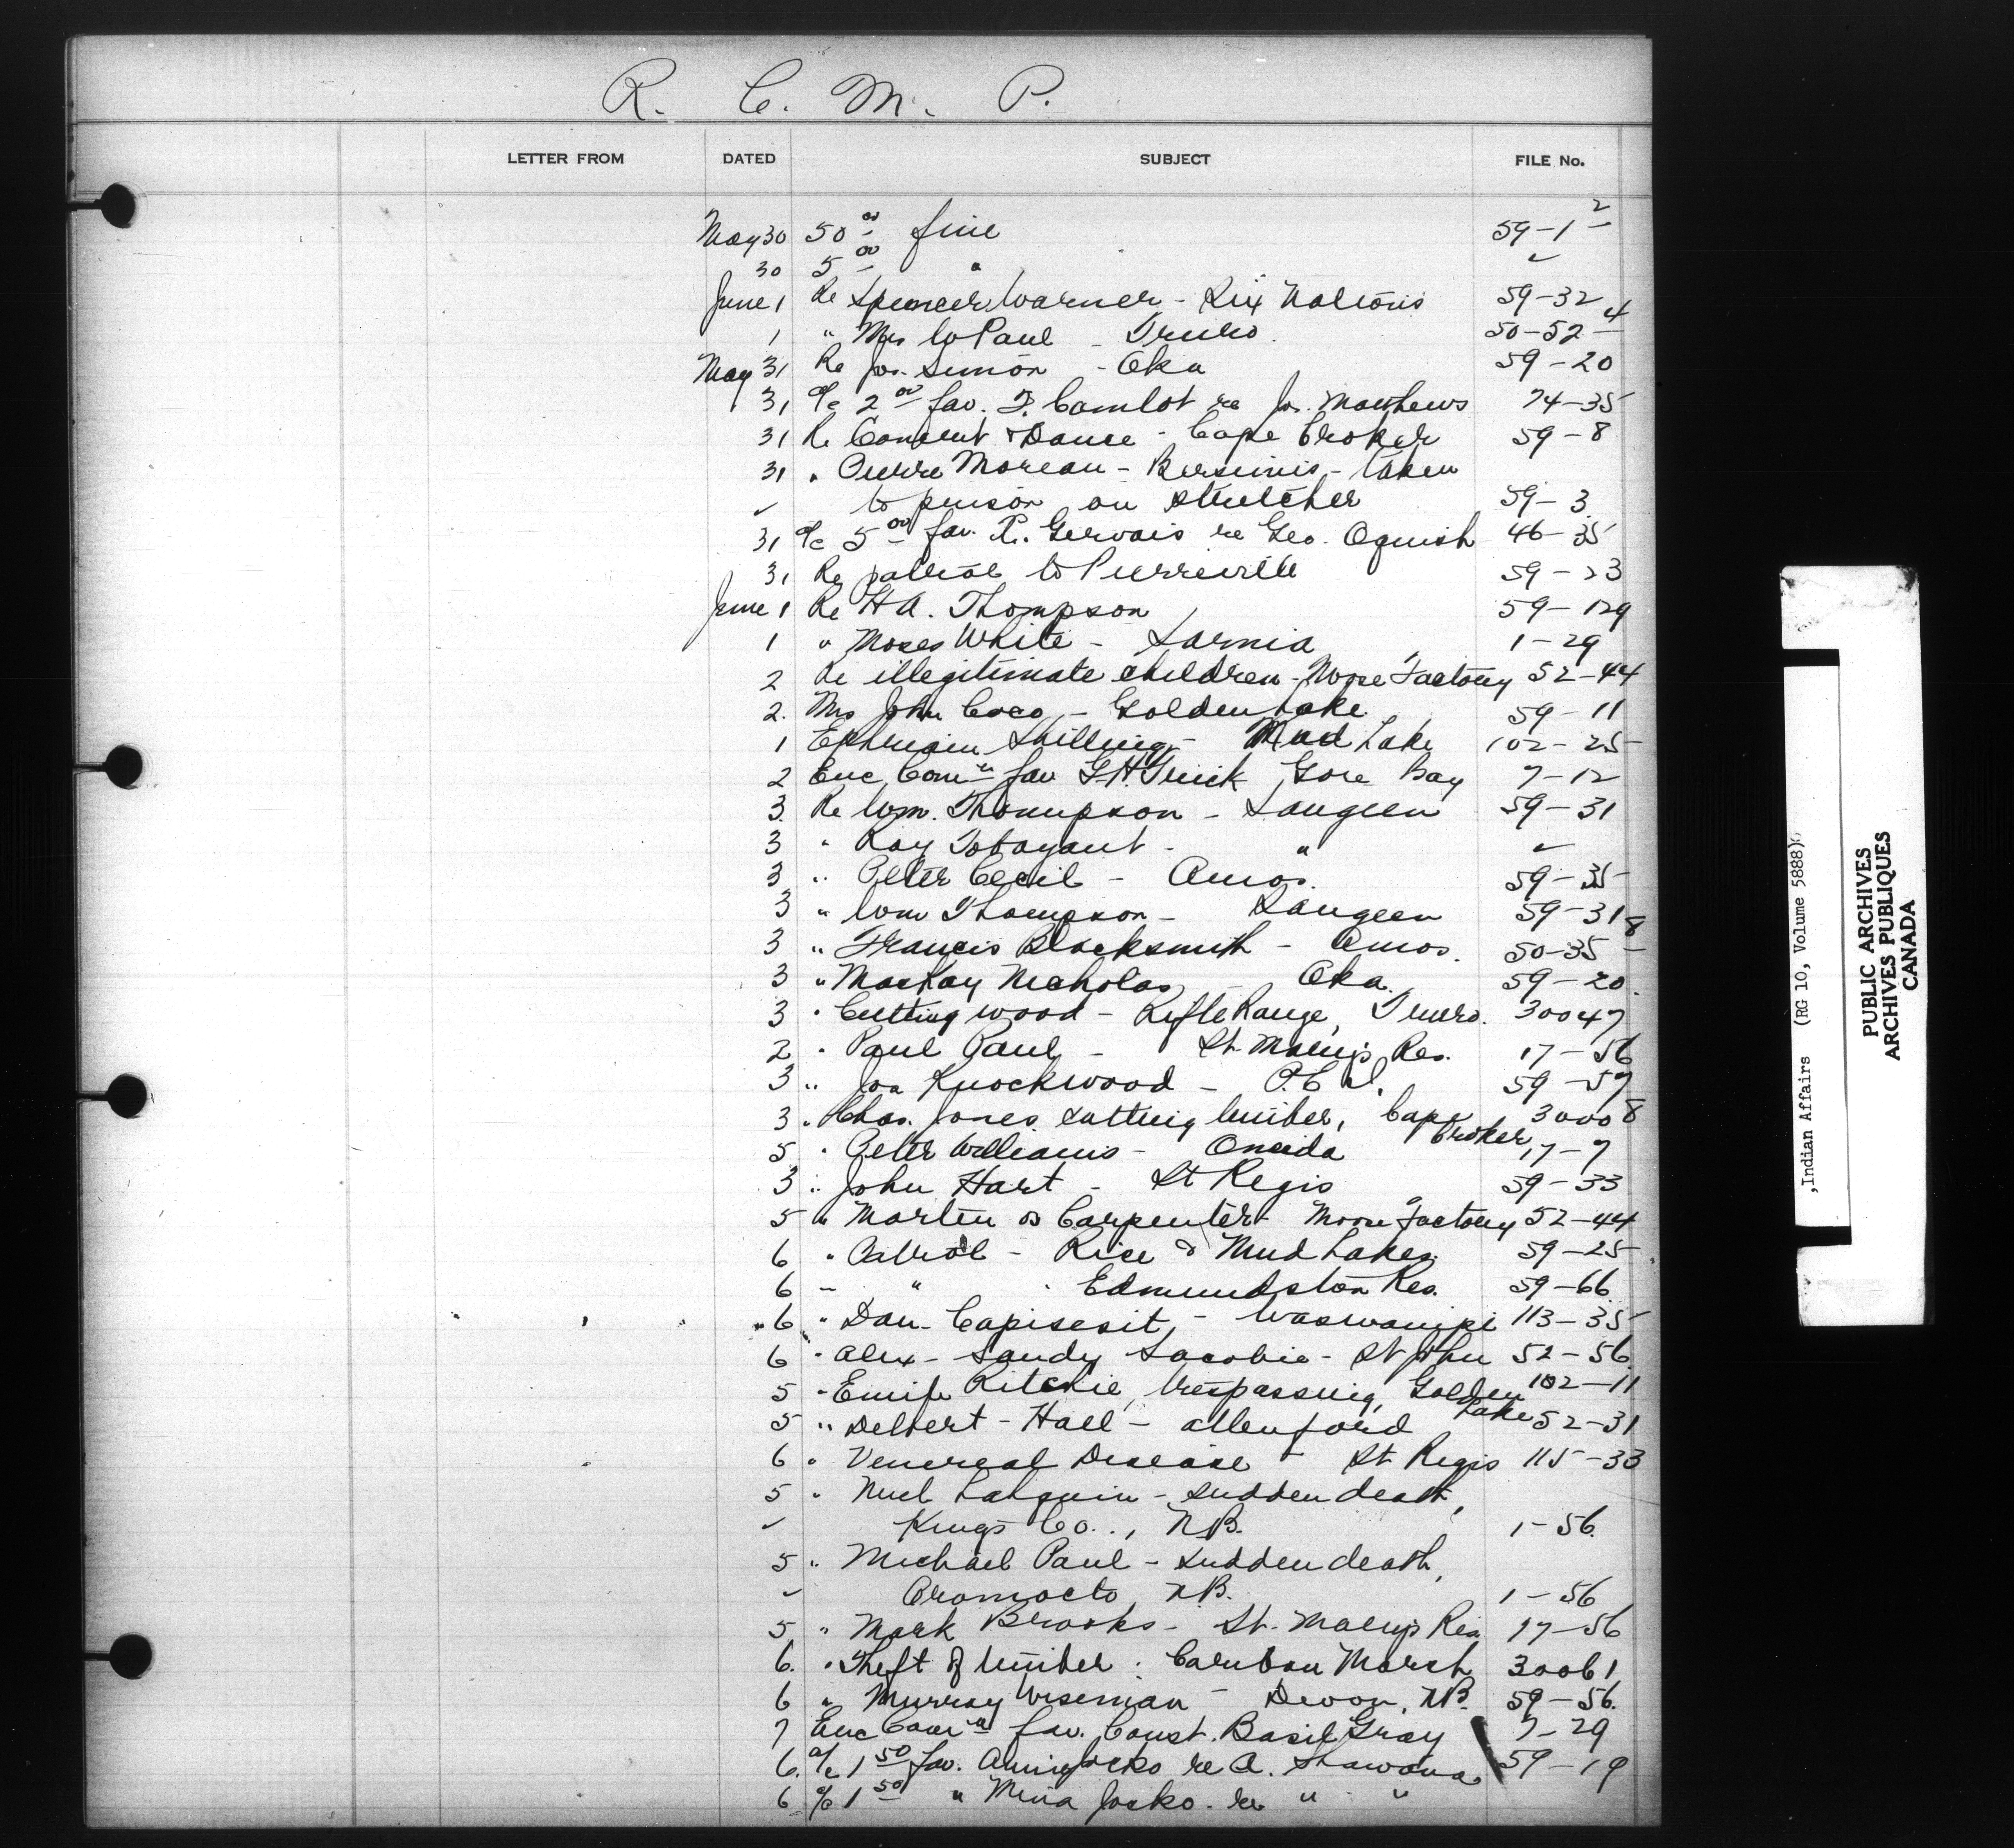 R. C. M. P.
LETTER FROM DATED SUBJECT FILE No.
May 30 50 00 fine 59-1 2
30 5 00 " ✓
June 1 Re Spencer Warner - Six Nations 59-32
1 " Mrs Wm Paul - Truro. 50-52 4
May 31 Re Jos. Simon - Oka 59-20
31 a/c 2 00 fav. F. Camlot re Jos. Matthews 74-35
31 Re Concert & Dance - Cape Croker 59-8
31 " Pierre Moreau - Bersimis - taken
✓ to prison on stretcher 59-3
31 a/c 5 00 fav. R. Gervais re Geo. Oguish 46-35
31 Re patrol to Pierreville 59-23
June 1 Re H A. Thompson 59-129
1 " Moses White - Sarnia 1-29
2 Re illegitimate children - Moose Factory 52-44
2. Mrs John Coco - Golden Lake 59-11
1 Ephraim Shilling - Mud Lake 102-25
2 Enc Com'n fav G.H. Trick Gore Bay 7-12
3. Re Wm. Thompson - Saugeen 59-31
3 " Ray - " ✓
3 " Peter Cecil - Amos. 59-35
3 " Wm Thompson - Saugeen 59-31
3 " Francis Blacksmith - Amos. 50-35 8
3 " MacKay Nicholas - Oka. 59-20.
3 " Cutting wood - Rifle Range, Truro. 30047
2 " Paul Paul - St. Mary's Res. 17-56
3 " Joe Knockwood - P.E.I. 59-57
3 " Chas. Jones cutting timber, Cape 30008
Croker
5 " Peter Williams - Oneida 17-7
3 " John Hart - St Regis 59-33
5 " Martin or Carpenter - Moose Factory 52-44
6 " Patrol - Rice & Mud Lakes. 59-25
6 " " " Edmundston Res. 59-66
6 " Dan Capisesit, - Waswanipi 113-35
6 " Alex - Sandy Sacobie - St John 52-56.
5 " Emile Ritchie, trespassing, Golden 102-11
Lake
5 " Delbert - Hall - Allenford 52-31
6 " Venereal Disease - St Regis 115-33
5 " Noel - sudden death,
✓ Kings Co., N.B. 1-56.
5 " Michael Paul - sudden death,
✓ Oromocto N.B. 1-56
5 " Mark Brooks - St. Mary's Res. 17-56
6. " Theft of timber. Caribou Marsh 30061
6 " Murray Wiseman - Devon, N.B. 59-56.
7 Enc Com'n fav. Const. Basil Gray 7-29
6. a/c 1 50 fav. Jocko re A. Shawana 59-19
6 a/c 1 50 " Mina Jocko. re " "
,Indian Affairs (RG 10, Volume 5888)
PUBLIC ARCHIVES
ARCHIVES PUBLIQUES
CANADA